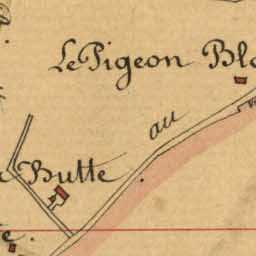 Le Pigeon Bl
au
Butte